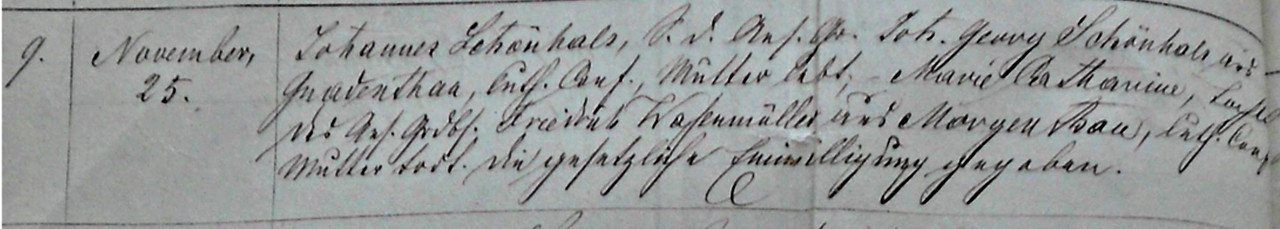 9. November, Johannes Schönhals, S. d. Ans. Gr. Joh. Georg Schönhals aus
25. Gnadenthau, luth. Conf., Mutter lebt; - Marie Catharine, Tochter
des Ans. Grdbs. Friedrich Wasenmüller aus Morgenthau, luth. Conf.
Mutter todt. die gesetzliche Einwilligung gegeben.